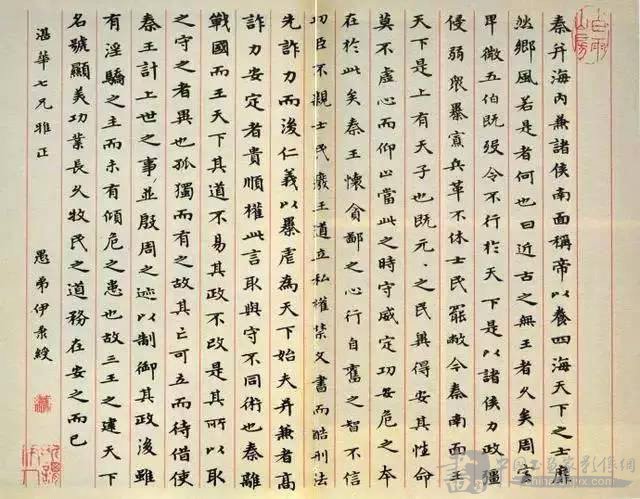 秦并海内兼諸侯南面稱帝以養四海天下之士斐
然鄉風若是者何也曰近古之無王者久矣周室
卑微五伯既殁令不行於天下是以諸侯力政彊
侵弱眾暴寡兵革不休士民罷敝今秦南面王
天下是上有天子也既元〻之民冀得安其性命
莫不虚心而仰上當此之時守威定功安危之本
在於此矣秦王懷貪鄙之心行自奮之智不信
功臣不親士民廢王道立私權禁文書而酷刑法
先詐力而後仁義以暴虐為天下始夫并兼者高
詐力安定者貴順權此言取與守不同術也秦離
戰國而王天下其道不易其政不改是其所以取
之守之者異也孤獨而有之故其亡可立而待借使
秦王計上世之事並殷周之迹以制御其政後雖
有淫驕之主而未有傾危之患也故三王之建天下
名號顯美功業長久牧民之道務在安之而已
湛華七兄雅正 愚弟伊秉綬